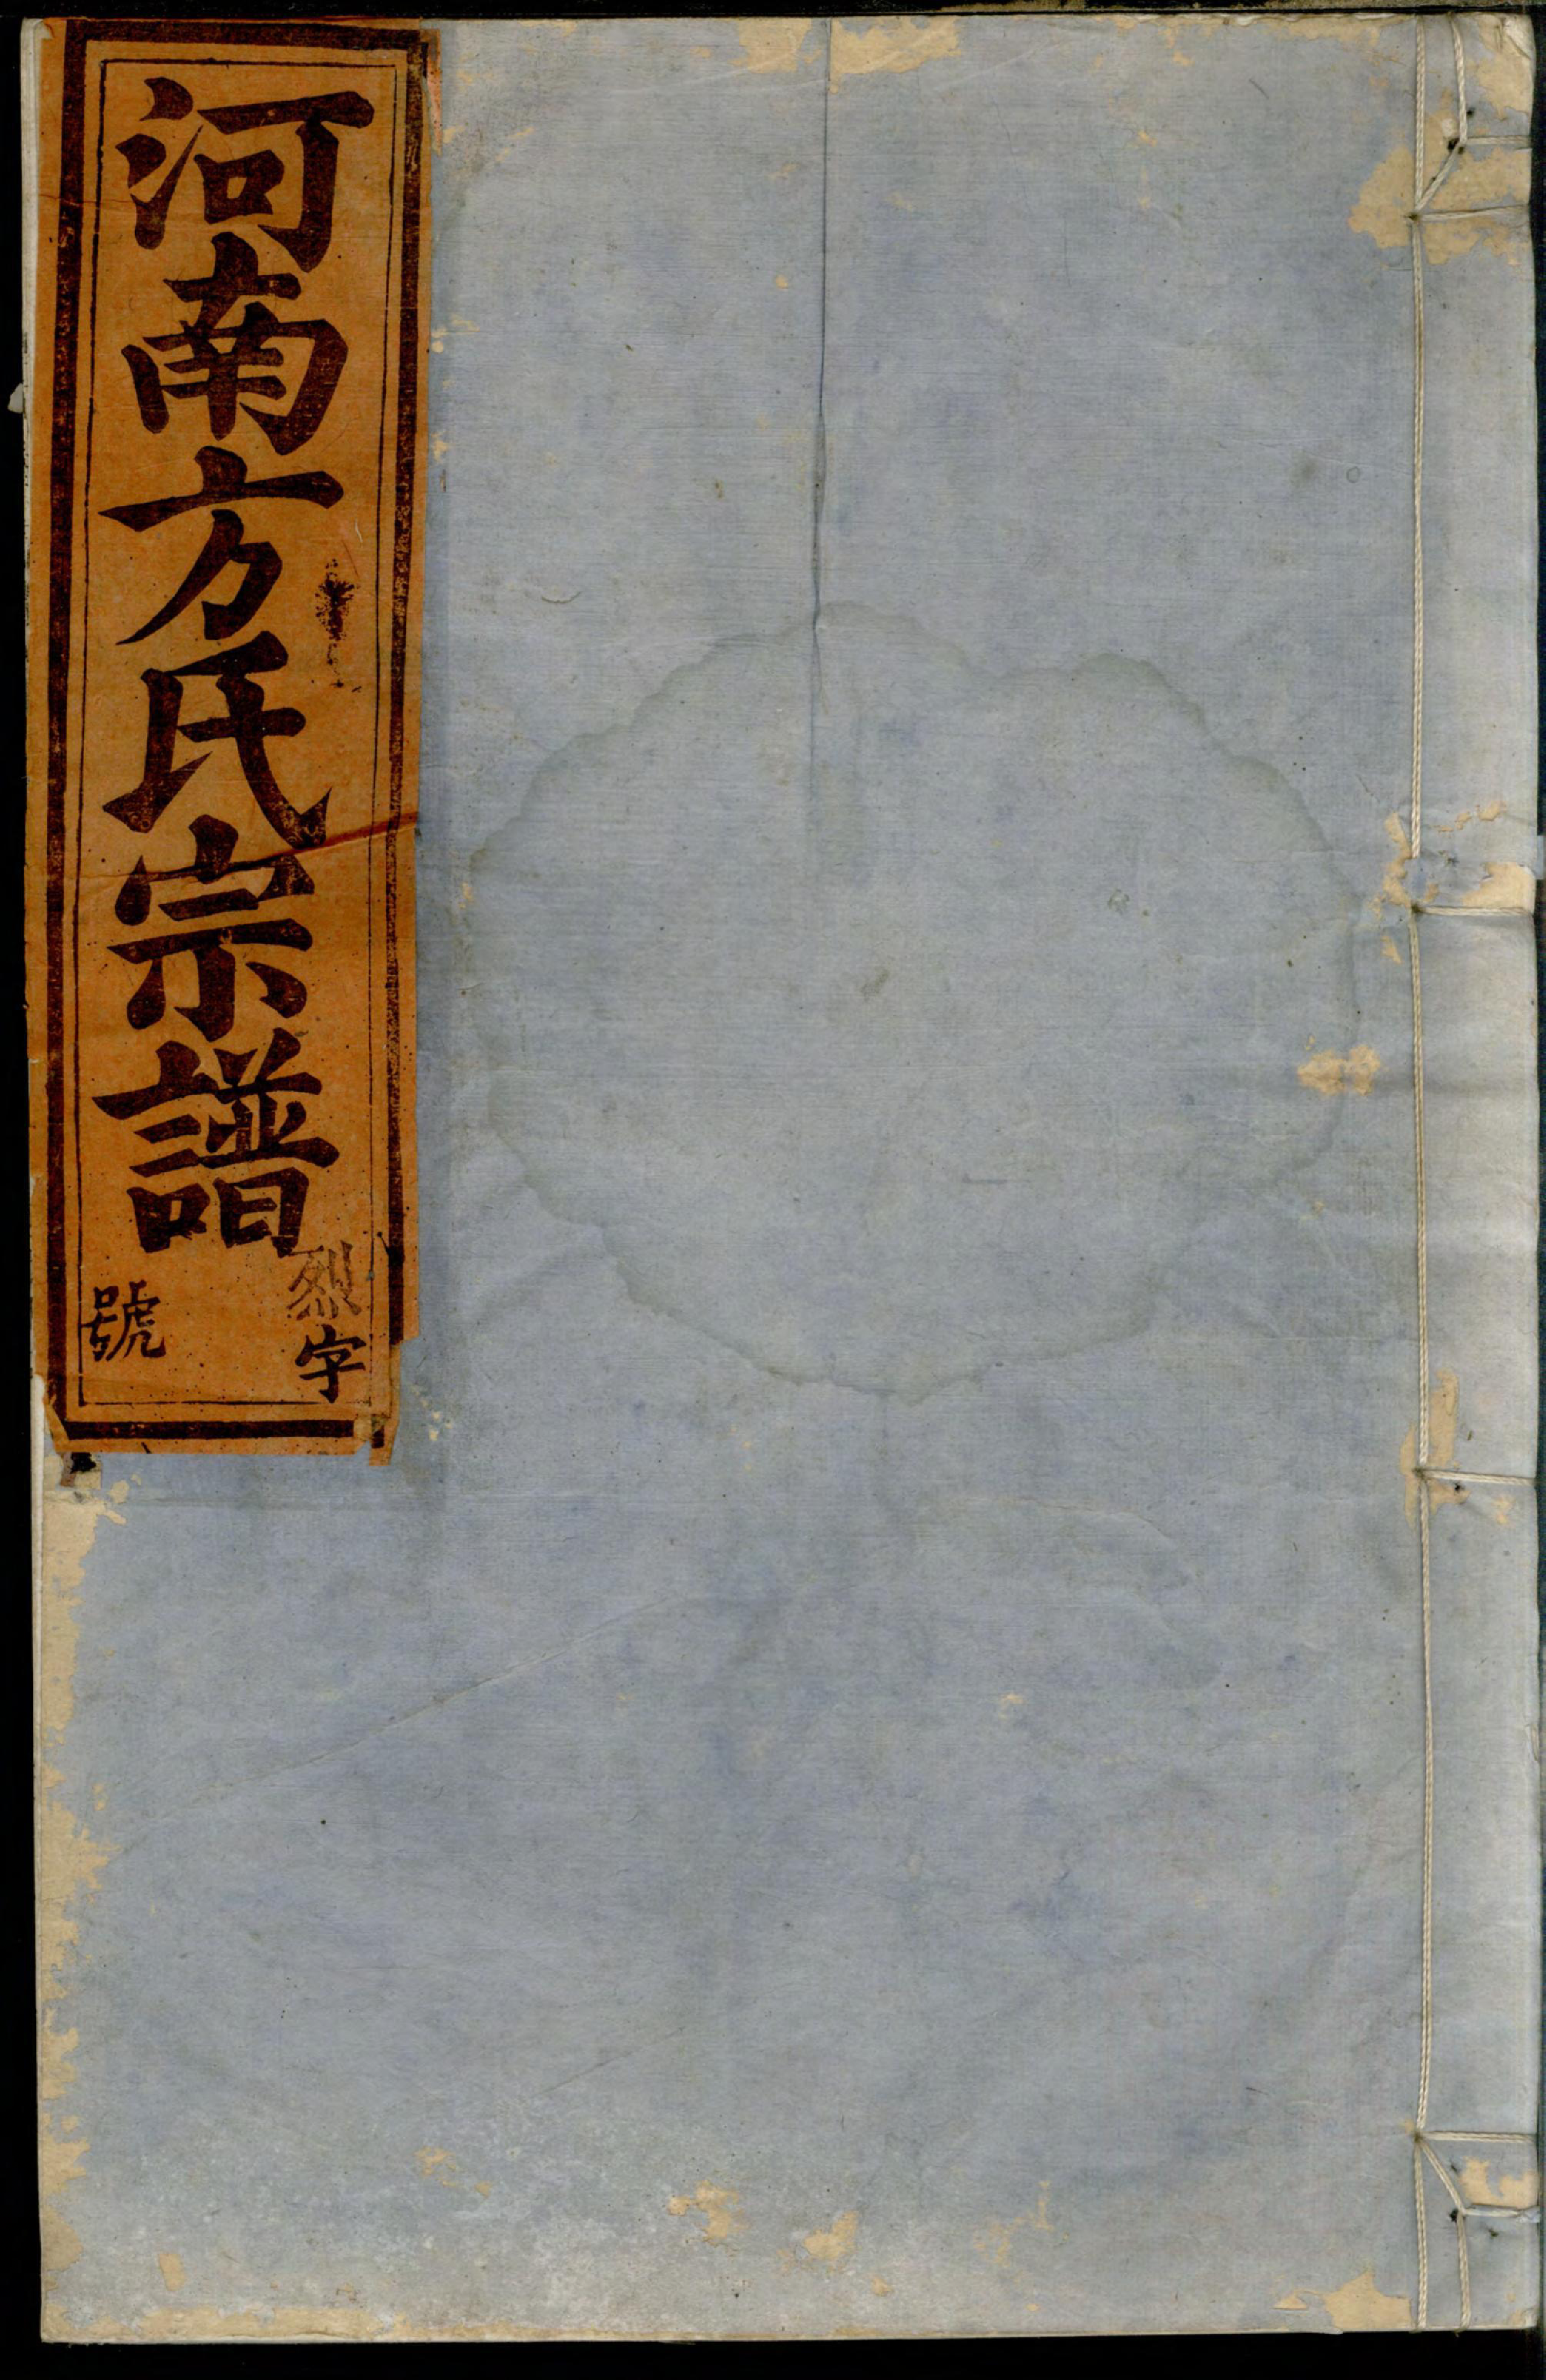 河南方氏宗譜
烈字
號